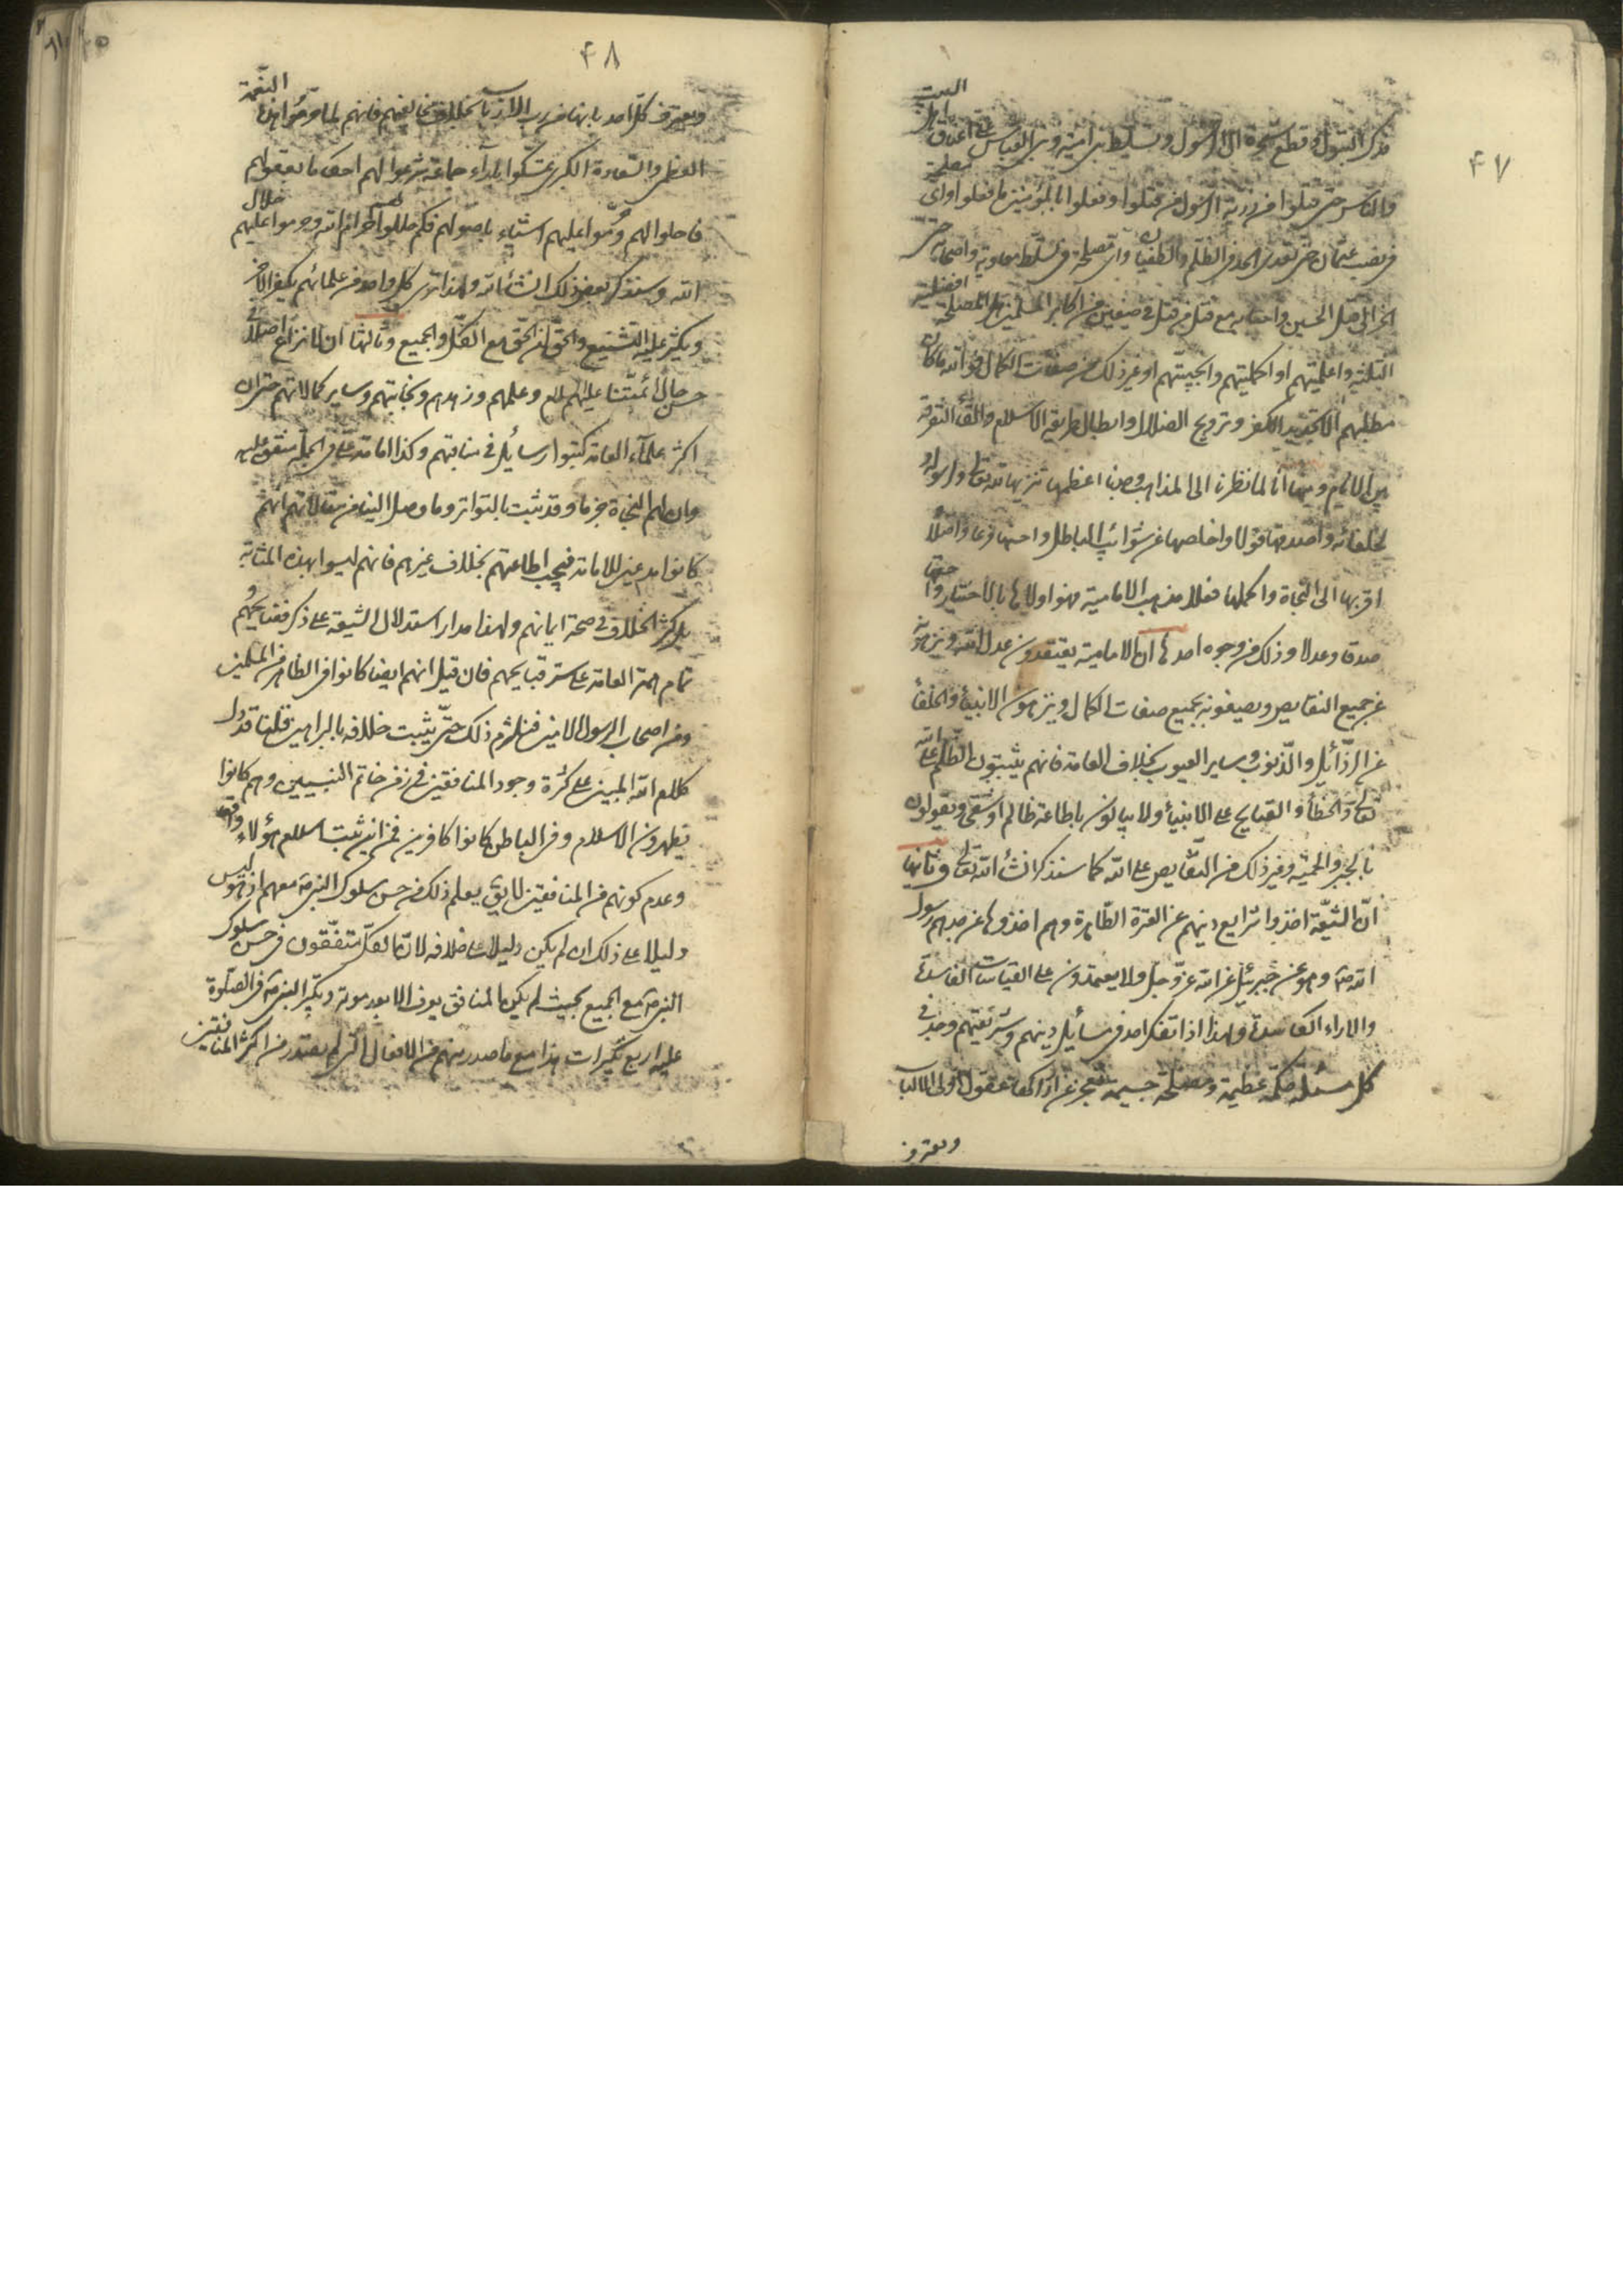 ۴۷
فدك البتول وقطع شجرة ال الرسول وتسليط بنى امية وبنى العباس على اعناق اهل البيت
والناس حتى قتلوا من ذرية الرسول من قتلوا وفعلوا بالمؤمنين ما فعلوا واى مصلحة
فى نصب عثمان حتى تعدى الحد فى الظلم والطغيان واى مصلحة فى تسلط معاوية واصحابه حتى
انجر الى قتل الحسين واصحابه مع قتل من قتل فى صفين من اكابر المسلمين افضلية
الثلثة واعلميتهم او اكمليتهم وانجبيتهم او غير ذلك من صفات الكمال فوالله ما كان
مطلبهم الا تجديد الكفر وترويج الضلال وابطال طريقة الاسلام والقاء التفرقة
بين الانام ومنها أنا لما نظرنا الى المذاهب وجدنا اعظمها تنزيها لله تعالى ولرسوله
لخلفائه واصدقها قولا واخلصها عن شوائب الباطل واحسنها فرعا واصلا
اقربها الى النجاة واكملها فعلا مذهب الامامية فهو اولاها بالاختيار واحقها
صدقا وعدلا وذلك من وجوه احدها ان الامامية يعتقدون عدل الله وينزهونه
عن جميع النقايص ويصفونه بجميع صفات الكمال وينزهون الانبياء والخلفاء
عن الرذايل والذنوب وساير العيوب بخلاف العامة فانهم يثبتون الظلم على الله
تعالى والخطاء والقبايح على الانبياء ولا يبالون باطاعة ظالم او شقى ويقولون
بالجبر والجسمية وغير ذلك من النقايص على الله كما سنذكر انشاء الله تعالى وثانيها
ان الشيعة اخذوا شرايع دينهم عن العترة الطاهرة وهم اخذوها عن جدهم رسول
الله ص وهو عن جبرئيل عن الله عز وجل ولا يعتمدون على القياسات الفاسدة
والاراء الكاسدة ولهذا اذا تفكر احد فى مسايل دينهم وشريعتهم وجد فى
كل مسئلة حكمة عظيمة ومصلحة جسيمة تعجز عن ادراكها عقول اولى الالباب
ويعترف
۴۸
ويعترف كل احد بانها من رب الارباب بخلاف مخالفهم فانهم لما حرموا هذه النعمة
العظمى والسعادة الكبرى تمسكوا باراء جماعة شرعوا لهم احكاما بعقولهم
فاحلوا لهم وحرموا عليهم اشياء باصولهم فكم حللوا لهم حرام الله وحرموا عليهم حلال
الله وسنذكر بعض ذلك انشاء الله ولهذا ترى كل واحد من علمائهم يكفر الاخر
ويكثر عليه التشنيع والحق ان الحق مع الكل والجميع وثالثها ان لا نزاع اصلا فى
حسن حال أئمتنا عليهم السلام وعلمهم وزهدهم ونجابتهم وساير كمالاتهم حتى ان
اكثر علماء العامة كتبوا رسايل فى مناقبهم وكذا امامة على فى الجملة متفق عليه
وان لهم النجاة جزما وقد ثبت بالتواتر وما وصل الينا من مقالاتهم انهم
كانوا مدعين للامامة فيجب اطاعتهم بخلاف غيرهم فانهم ليسوا بهذه المثابة
بل كثر الخلاف فى صحة ايمانهم ولهذا مدار استدلال الشيعة على ذكر فضايحهم
تمام همة العامة على ستر قبايحهم فان قيل انهم ايضا كانوا فى الظاهر من المسلمين
ومن اصحاب الرسول الامين فنلتزم ذلك حتى يثبت خلافه بالبراهين قلنا قد دل
كلام الله المبين على كثرة وجود المنافقين فى زمن خاتم النبيين وهم كانوا
يظهرون الاسلام وفى الباطن كانوا كافرين فمن اين ثبت اسلام هؤلاء واقعا
وعدم كونهم من المنافقين لا يق يعلم ذلك من حسن سلوك النبى ص معهم اذ هو ليس
دليلا على ذلك ان لم يكن دليلا على خلافه لانا لكل متفقون فى حسن سلوك
النبى ص مع الجميع بحيث لم يكن المنافق يعرف الا بعد موته ويكبر النبى ص فى الصلوة
عليه اربع تكبيرات هذا مع ما صدر منهم من الافعال التى لم يصدر من اكثر المنافقين